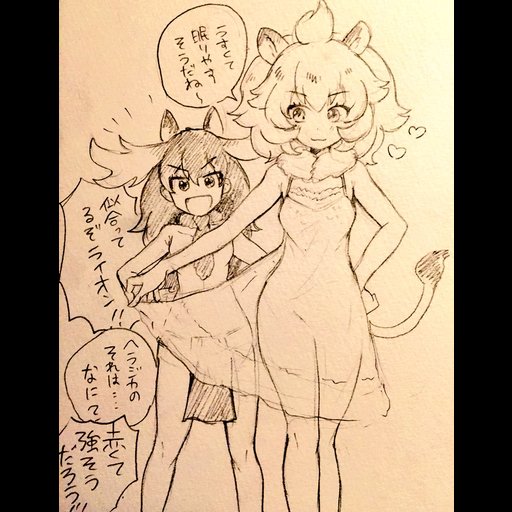 うすくて
眠りやす
そうだね～
似合って
るぞライオン!!
ヘラジカの
それは…
なにて
赤くて
強そう
だろう!!